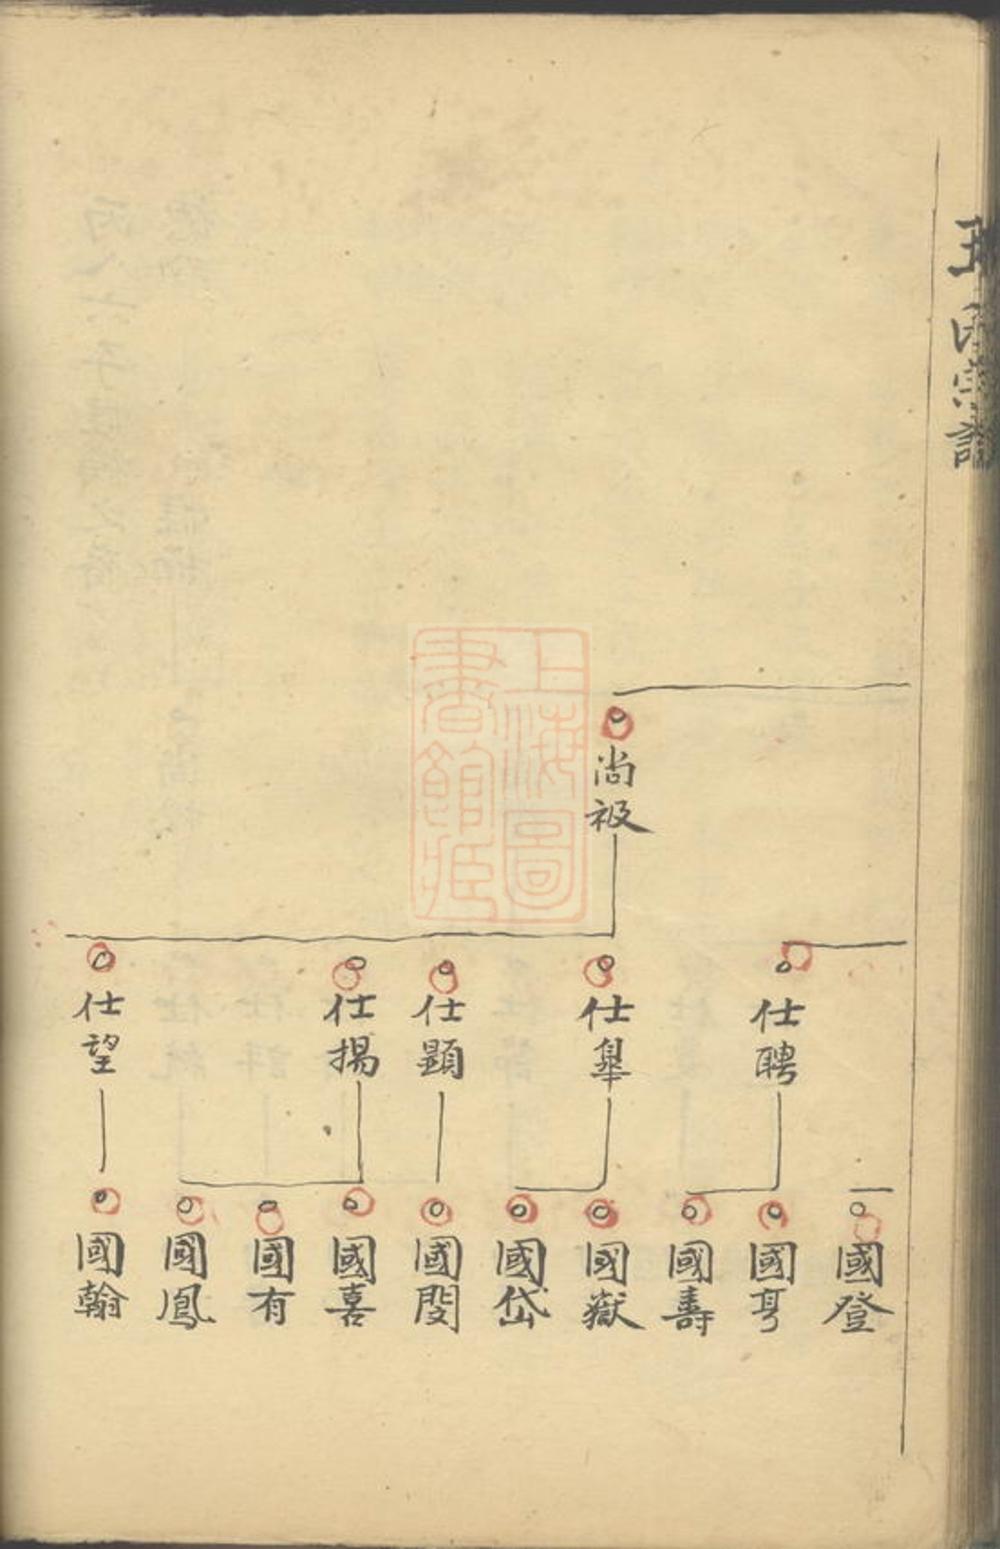 氏宗譜
尚衱
仕聘
仕皐
仕顯
仕揚
仕望
國登
國亨
國壽
國嶽
國岱
國閔
國喜
國有
國鳳
國翰
上海圖
書館藏